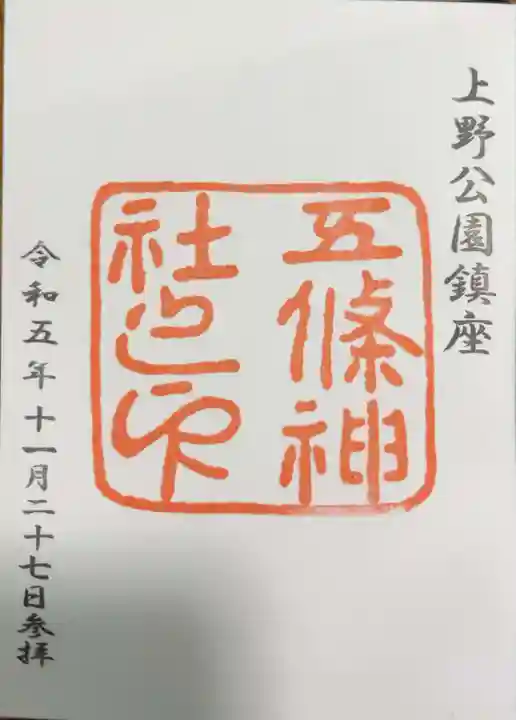 上野公園鎮座
五條神
社之印
令和五年十一月二十七日参拝